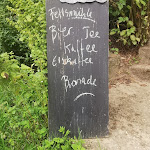 Felsmühle
Bier Tee
Kaffee
Eiskaffee
Bionade